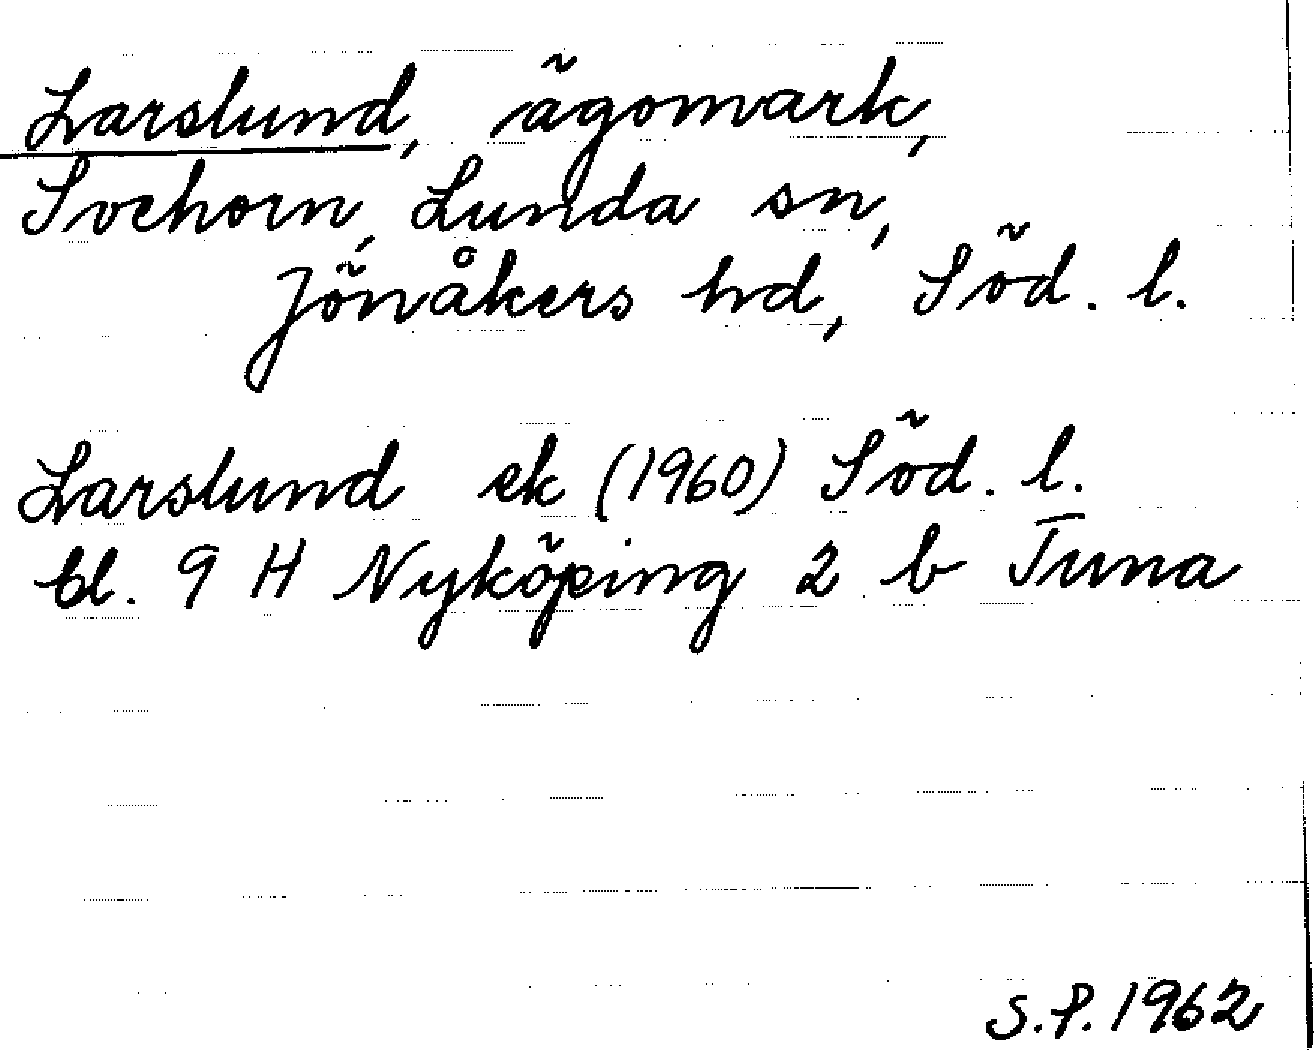 Larslund, ägomark,
Svehorn, Lunda sn,
Jönåkers hd, Söd. l.
Larslund ek (1960) Söd. l.
bl. 9 H Nyköping 2 b Tuna
S.P. 1962